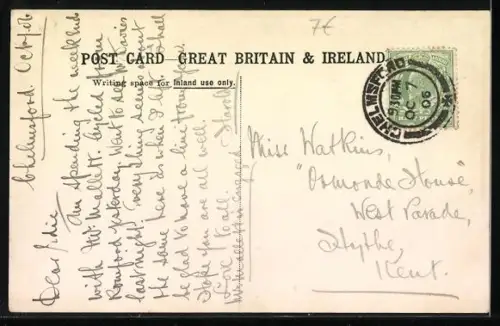 7€
POST CARD - GREAT BRITAIN & IRELAND.
Writing space for Inland use only.
CHELMSFORD
OC 7
06
Chelmsford. Oct 7/06
Dear
Am spending the week end
with Mr. Mallett. Cycled from
Romford yesterday. Went to see Mr Davies
last night, everything seems about
the same here as when I left. Shall
be glad to have a line from you.
Hope you are all well.
Love to all. Harold
Miss Watkins,
"Ormonde House",
West Parade,
Hythe,
Kent.